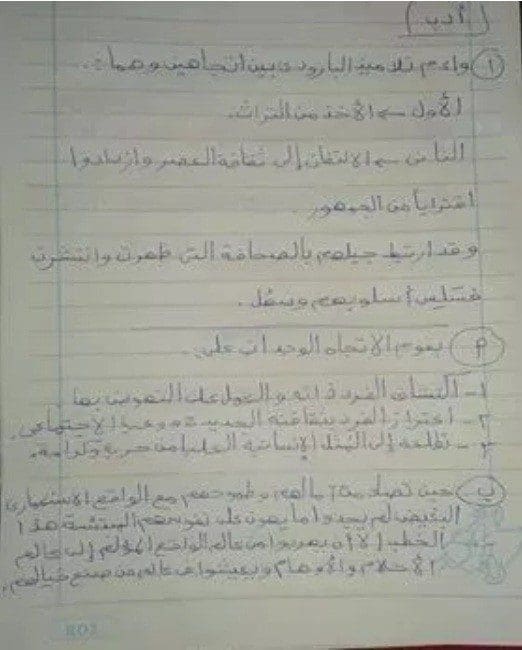 (أدب)
١ واءم تلاميذ البارودى بين اتجاهين وهما:-
الأول ← الأخذ من التراث.
الثانى ← الالتفات إلى ثقافة العصر وازدادوا
اقتراباً من الجمهور.
وقد ارتبط جيلهم بالصحافة التى ظهرت وانتشرت
فسلس أسلوبهم وسهل.
م يقوم الاتجاه الوجدانى على:-
١- الفرد ذاته والعمل على النهوض بها
٢- اعتزاز الفرد بثقافته الجديدة ووعيه الاجتماعى.
٣- تطلعه إلى المُثل الإنسانية العليا من حرية وكرامة.
ب حين تصادمت آمالهم وطموحهم مع الواقع الاستعمارى
البغيض لم يجدوا ما يهون على نفوسهم هذا
الخطب إلا أن يهربوا من عالم الواقع المؤلم إلى عالم
الأحلام والأوهام ويعيشوا فى عالم من صنع خيالهم.